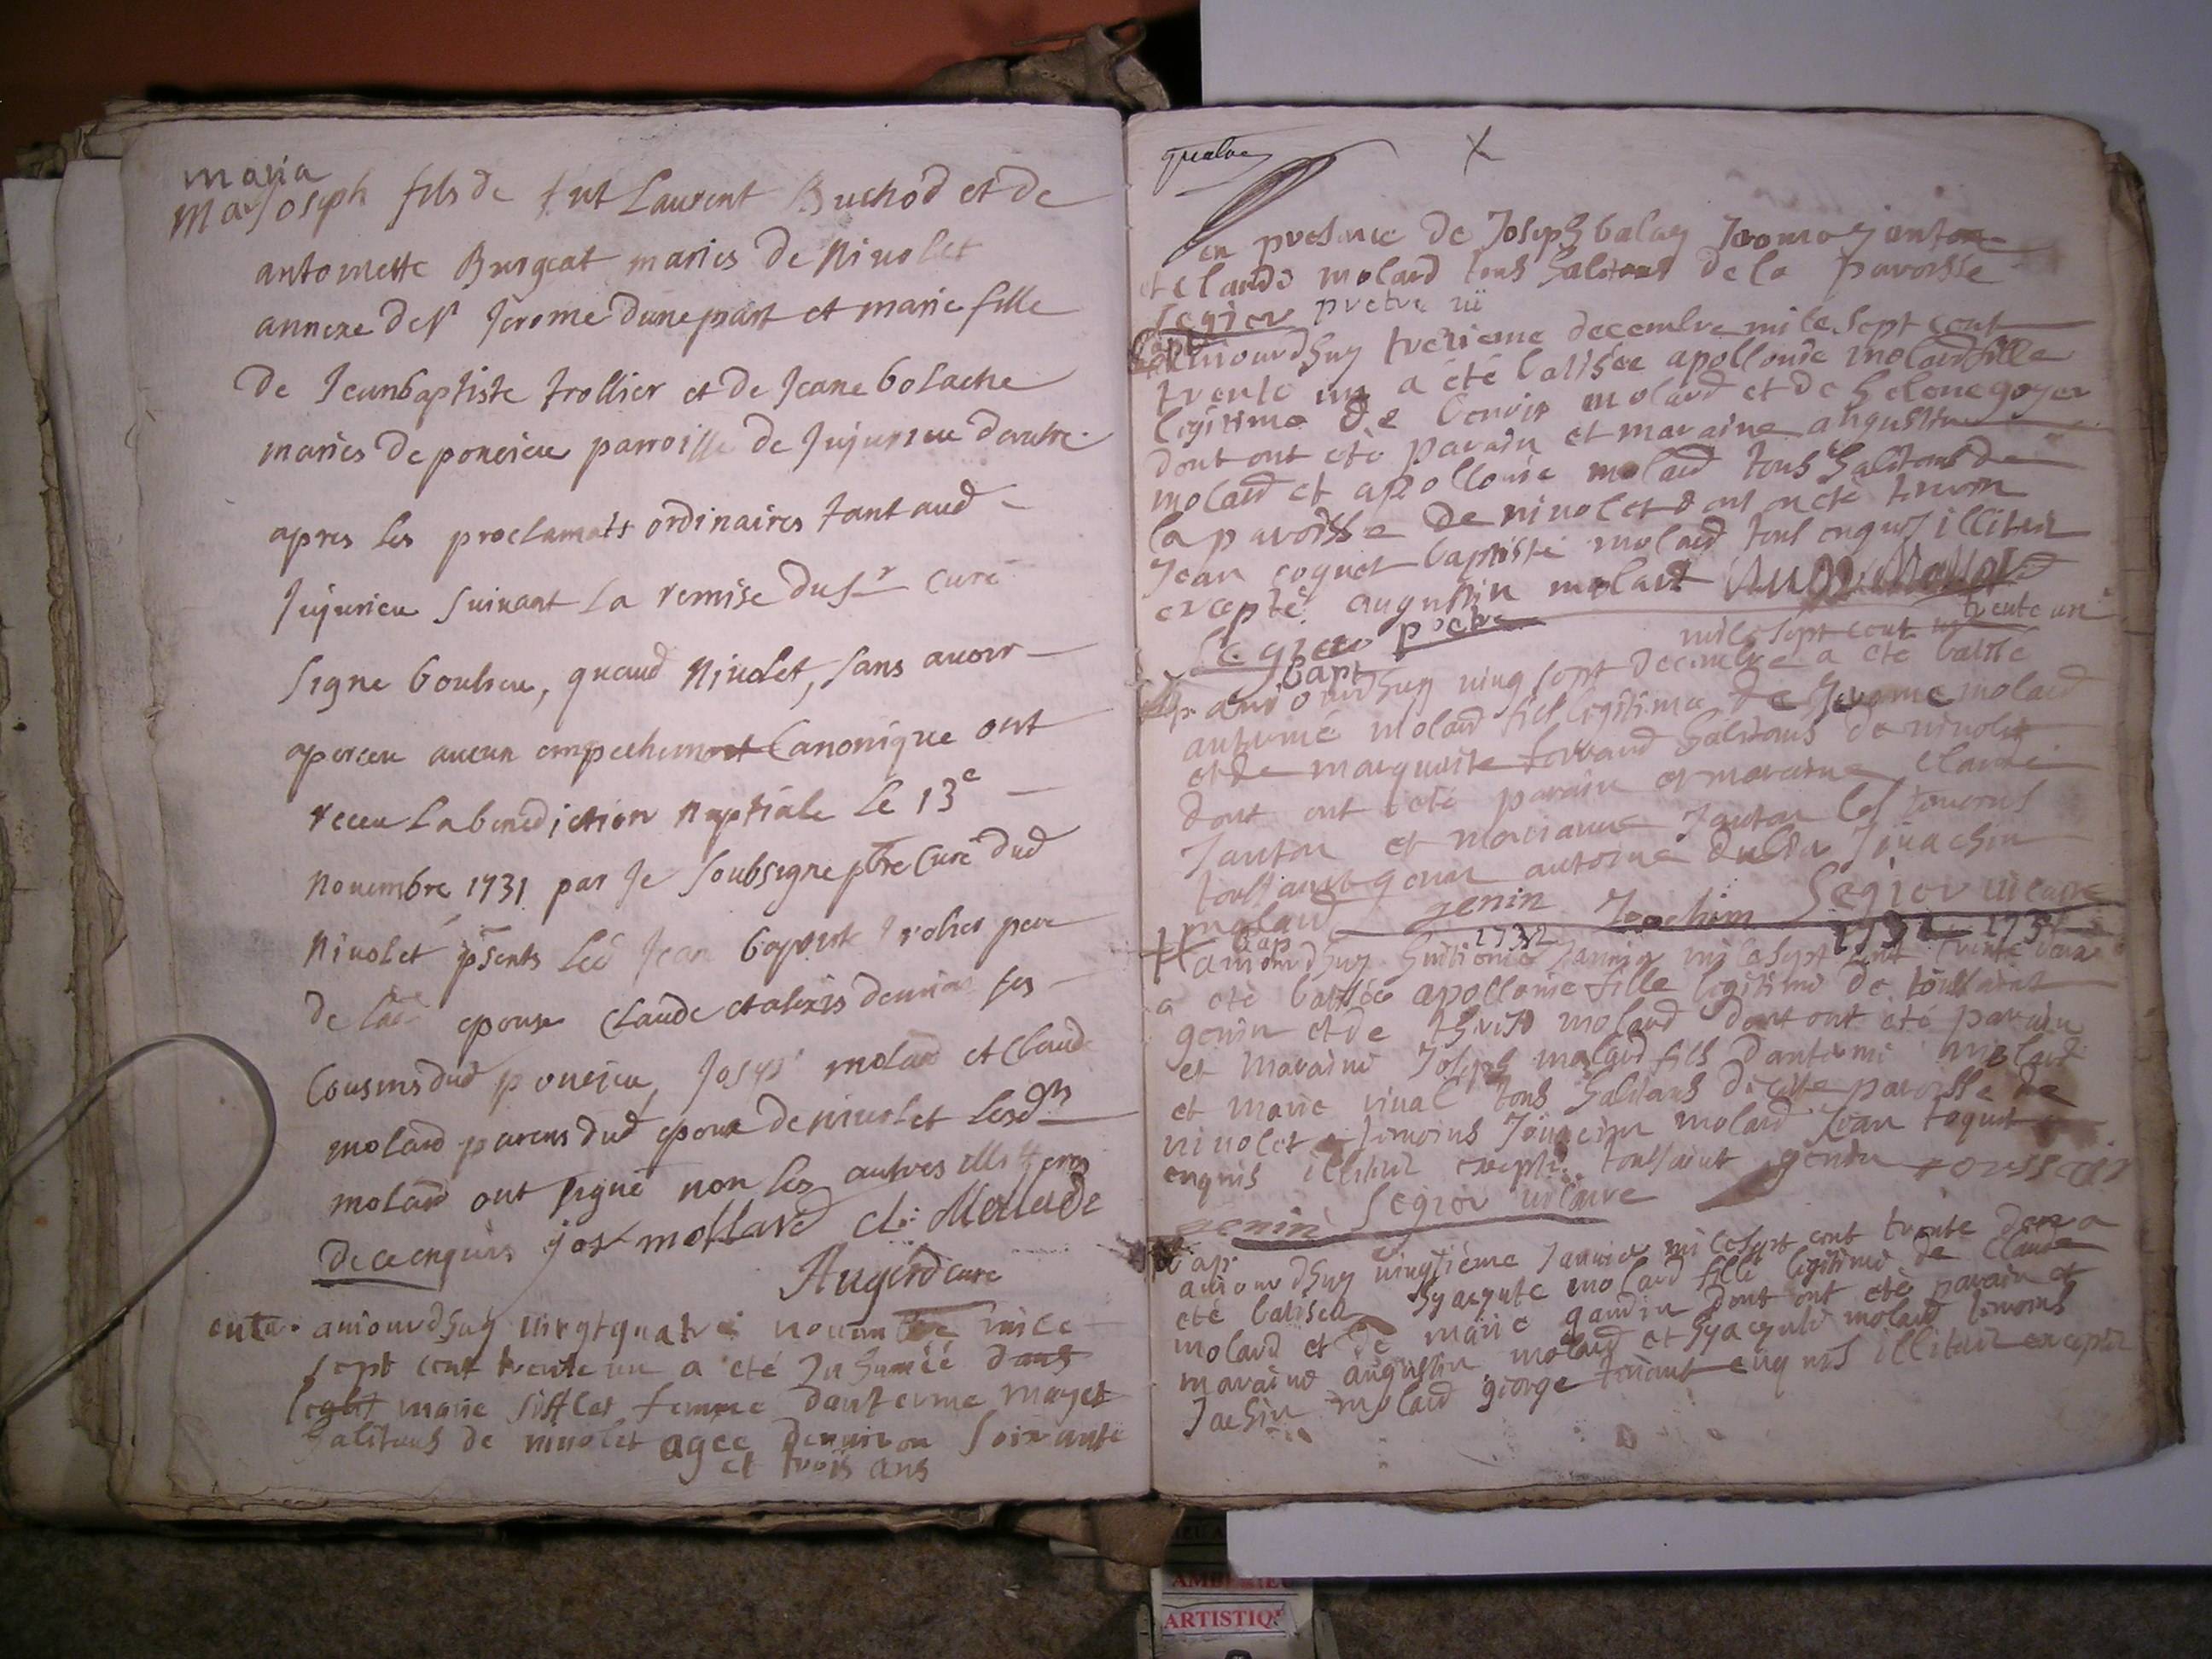 maria
Mar Joseph fils de fut Laurent Buchod et de
antoinette Burgeat maries de Nivolet
annexe de St Jerome dune part et marie fille
de Jeanbaptiste trollier et de Jeane bolache
maries de poncieu parroisse de Jujurieu dautre
apres les proclamats ordinaires tant aud
Jujurieu suivant la remise du sr curé
signe boulieu, quaud Nivolet, sans avoir
aperceu aucun empechement Canonique ont
receu La benediction Nuptiale le 13e
novembre 1731 par Je soubsigne pbre Curé dud
Nivolet psents Led Jean baptiste trolier pere
de lad epouse Claude et alexis ses
Cousins dud poncieu, Joseph molard et Claude
molard parens dud epoux de nivolet lesd
molard ont signé non les autres
de ce enquis jos mollard cl: Mollarde
Augerd curé
ente. aujourdhuy vingt quatre novembre mile
sept cent trente un a été Inhumée dans
marie sifflet femme dantoine mayet
habitans de nivolet agee denviron soixante
et trois ans
X
en presence de Joseph balay
et claude molard tous habitans de la paroisse
Segier pretre
Bap aujourdhuy treisieme decembre mile sept cent
trente un a été batisée apollonie molard fille
legitime de benoit molard et de helene goyer
dont ont été parain et maraine augustin
molard et apollonie molard tous habitans de
la paroisse de nivolet dont ont été temoin
Jean coquet baptiste molard tous enquis illiteré
excepté augustin molard
Segier pretre
mile sept cent trente un
bapt
aujourdhuy ving sept decembre a été batisé
antoine molard fils legitime de Jerome molard
et de marguerite ferrand habitans de nivolet
dont ont été parain et maraine claude
Janton et marianne Janton les temoins
toussaint genin antoine Joachin
molard genin Joachim Segier vicaire
bap 1732 1732 1732
aujourdhuy huitieme Janvier mile sept cent trente deux
a été batisée apollonie fille legitime de toussaint
genin et de molard dont ont été parain
et maraine Joseph molard fils dantoine molard
et marie vinal tous habitans de cette paroisse de
nivolet temoins molard Jean coquet
enquis illiteré excepté toussaint genin toussain
genin Segier vicaire
bap
aujourdhuy vingtième Janvier mile sept cent trente deux a
été batisée hyacynte molard fille legitime de claude
molard et de marie gaudin dont ont été parain et
maraine augustin molard et hyacynte molard temoins
Jachin molard george enquis illiteré excepté
AMBERIEU
ARTISTIQ